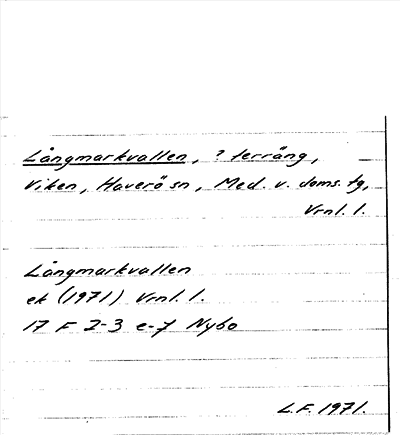 Långmarkvallen, ? terräng,
Viken, Haverö sn, Med. v. doms. tg,
Vrnl. l.
Långmarkvallen
ek (1971) Vrnl. l.
17 F 2-3 e-f Nybo
L.F. 1971.